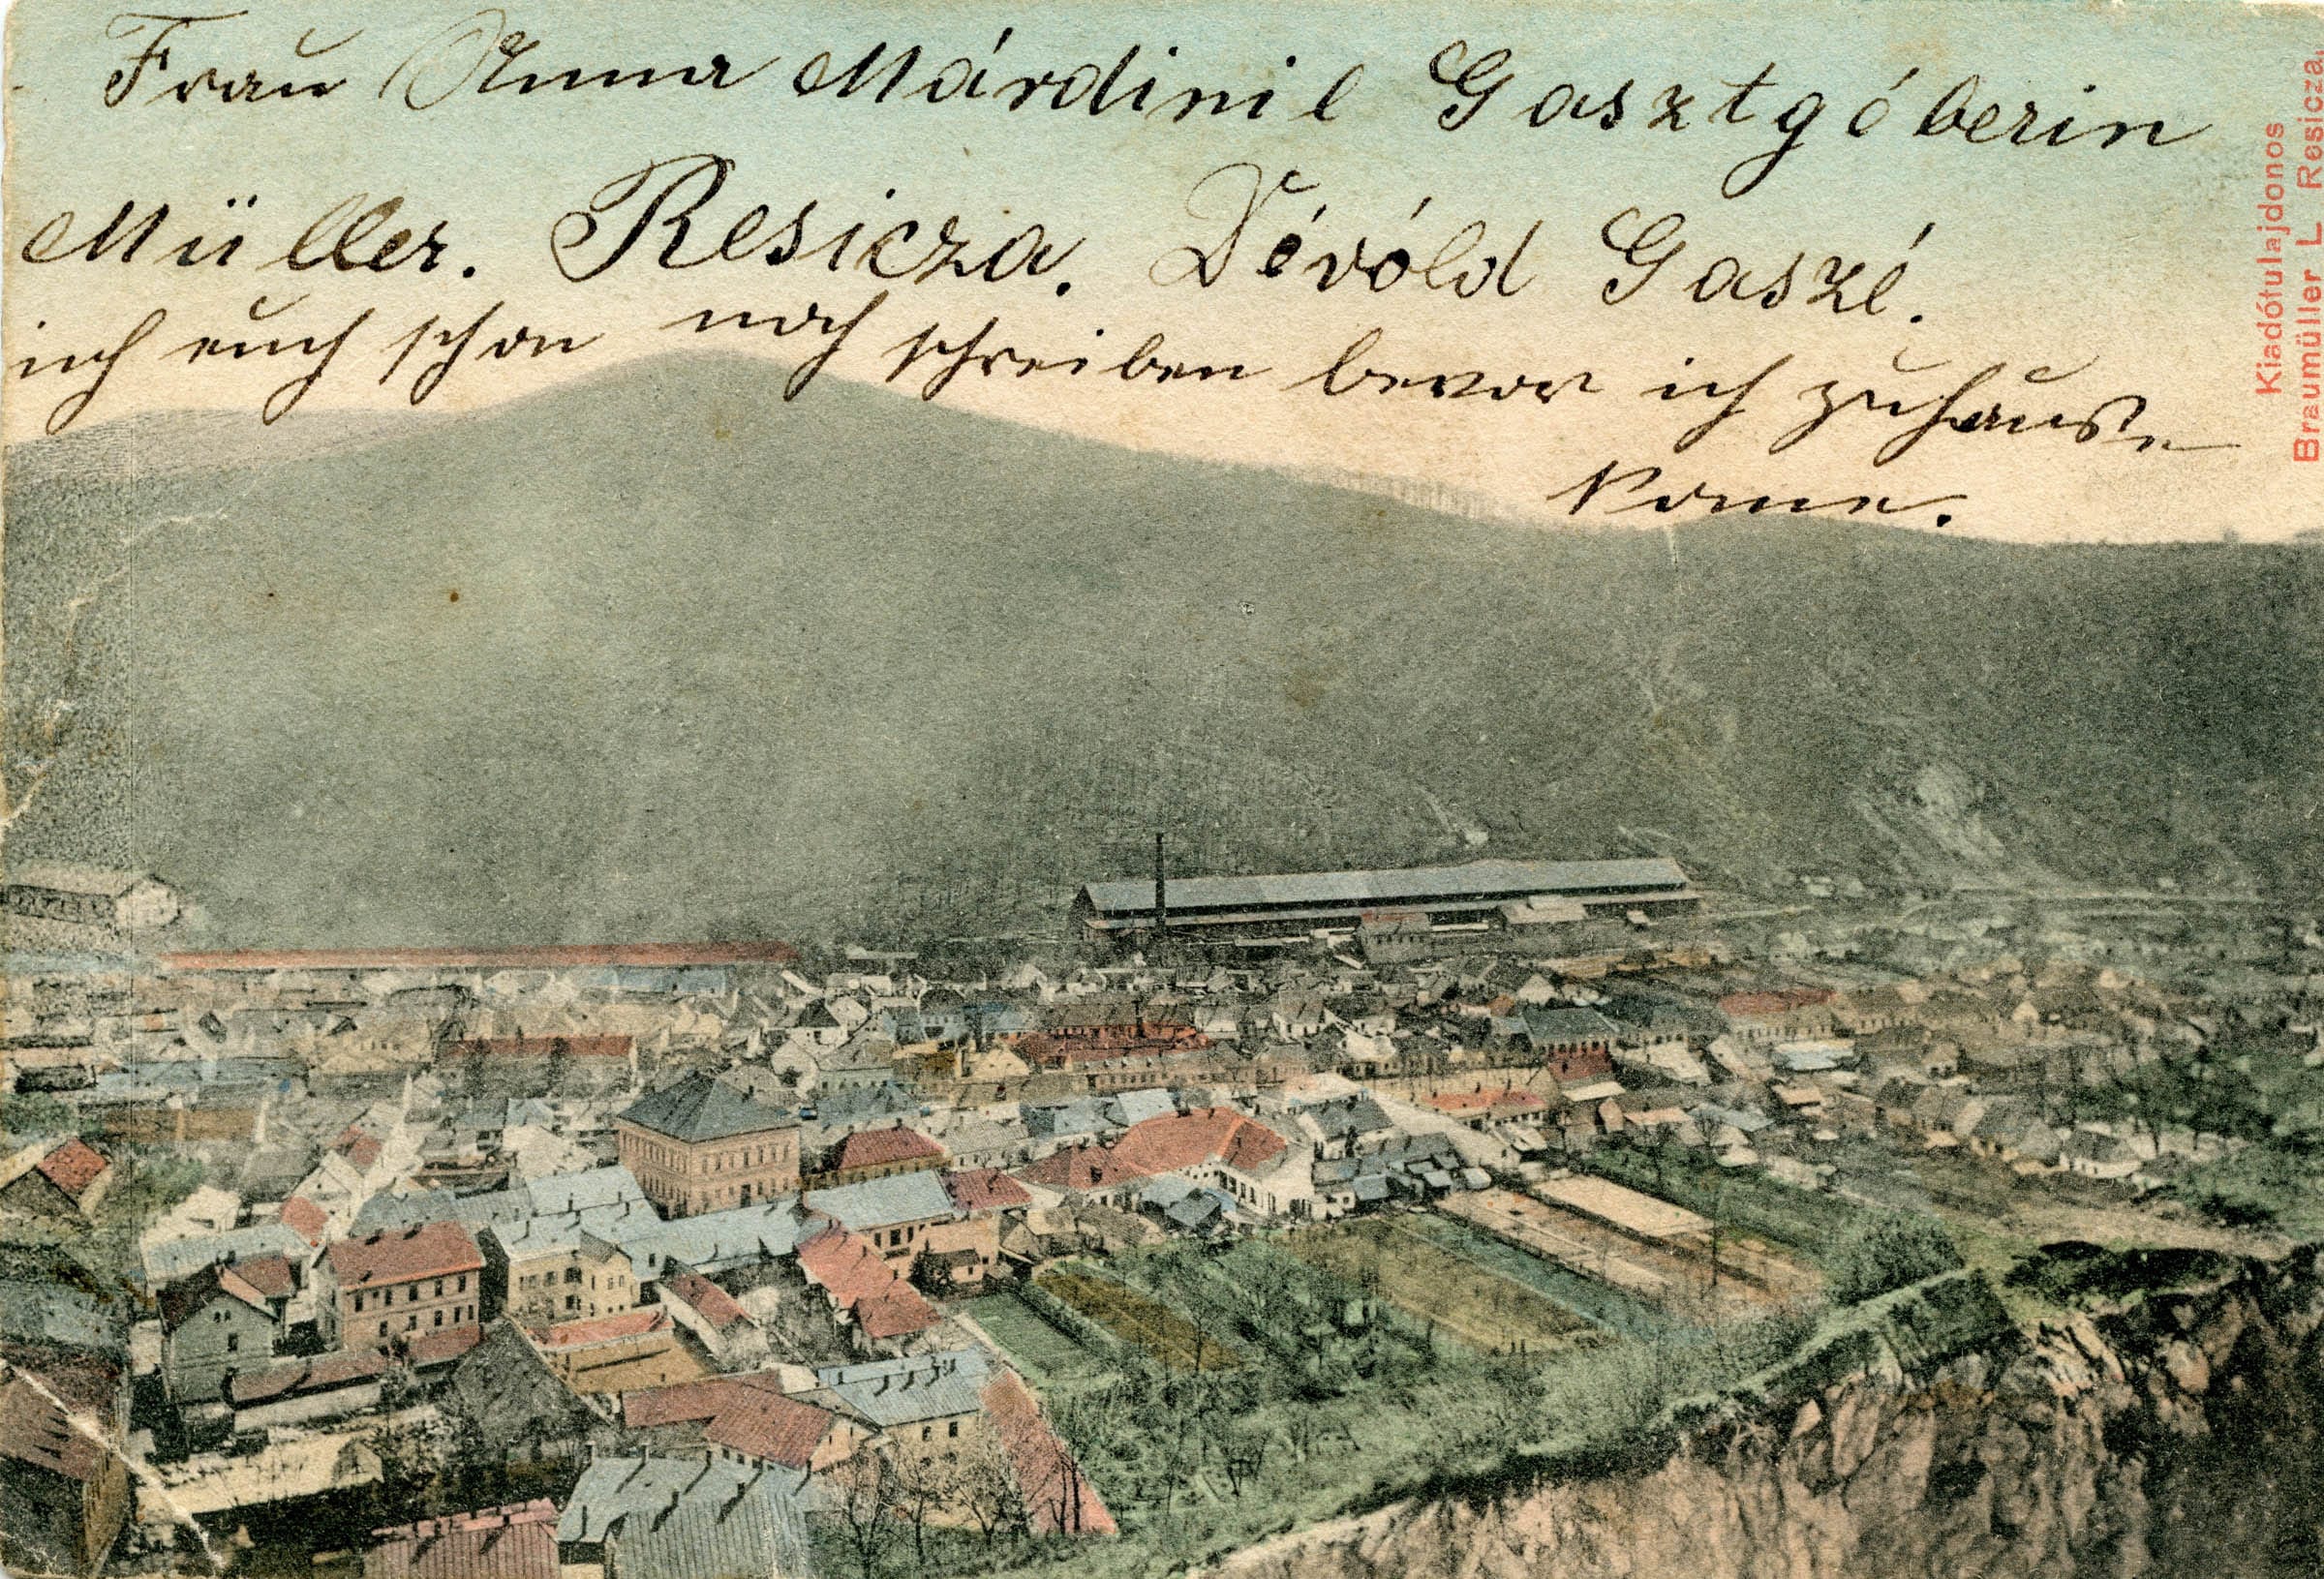 Frau Anna Márdinil Gasztgéberin
Müller. Resicza. Gasze.
ich euch schon noch schreiben bevor ich zuhause
kome.
Kiadótulajdonos
Braumüller L. Resicza.